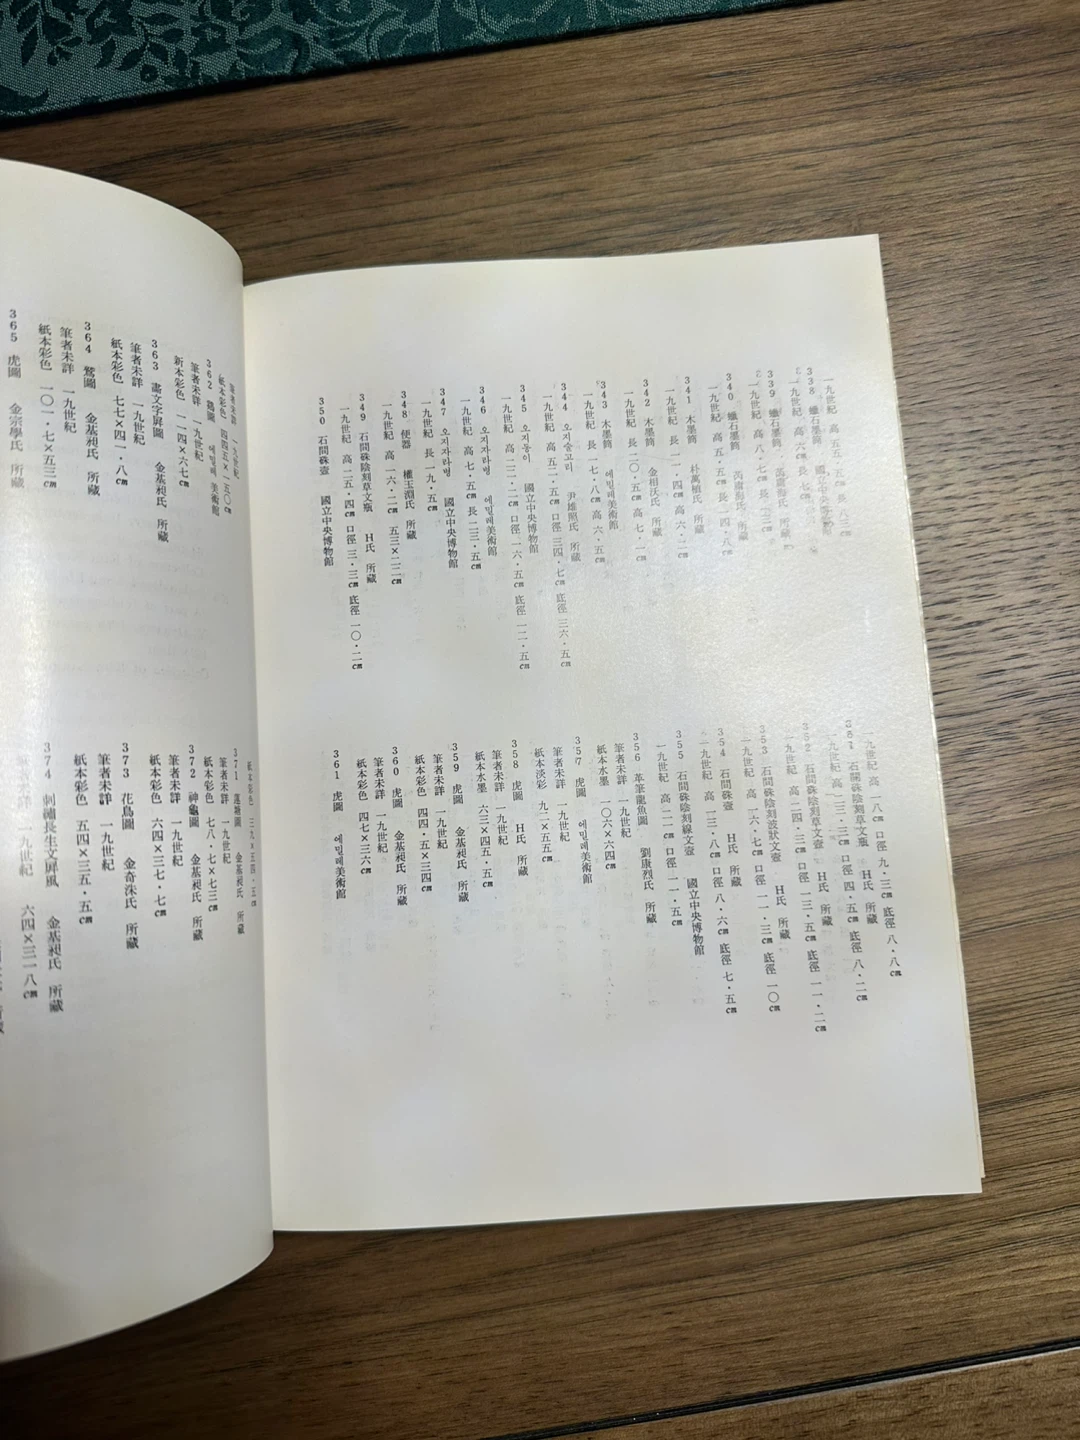 一九世紀 高 五・五cm 長 八cm
338 蠟石墨筒 國立中央博物館
一九世紀 高 六cm 長 七cm
339 蠟石墨筒 芮庸海氏 所藏
一九世紀 高 八・七cm 長 一三cm
340 蠟石墨筒 芮庸海氏 所藏
一九世紀 高 五・五cm 長 一四・八cm
341 木墨筒 朴萬植氏 所藏
一九世紀 長 一一・四cm 高 六・二cm
342 木墨筒 金相沃氏 所藏
一九世紀 長 二〇・五cm 高 六・二cm
343 木墨筒 에밀레美術館
一九世紀 長 一七・八cm 高 六・五cm
344 오지술고리 尹雄照氏 所藏
一九世紀 高 五二・五cm 口徑 三四・七cm 底徑 三六・五cm
345 오지동이 國立中央博物館
一九世紀 高 二二・二cm 口徑 一六・五cm 底徑 一二・五cm
346 오지자라병 에밀레美術館
一九世紀 高 七・五cm 長 二三・五cm
347 오지자라병 國立中央博物館
一九世紀 長 一九・五cm
348 便器 權玉淵氏 所藏
一九世紀 高 一六・二cm 五三×二二cm
349 石間硃陰刻草文瓶 H氏 所藏
一九世紀 高 二五・四cm 口徑 三・三cm 底徑 一〇・二cm
350 石間硃壺 國立中央博物館
一九世紀 高 一八cm 口徑 九・三cm 底徑 八・八cm
351 石間硃陰刻草文瓶 H氏 所藏
一九世紀 高 二三・三cm 口徑 四・五cm 底徑 八・二cm
352 石間硃陰刻草文壺 H氏 所藏
一九世紀 高 二四・三cm 口徑 一三・五cm 底徑 一一・二cm
353 石間硃陰刻波狀文壺 H氏 所藏
一九世紀 高 一六・七cm 口徑 一一・三cm 底徑 一〇cm
354 石間硃壺 H氏 所藏
一九世紀 高 一三・八cm 口徑 八・六cm 底徑 七・五cm
355 石間硃陰刻線文壺 國立中央博物館
一九世紀 高 二一cm 口徑 一一・五cm
356 革筆龍魚圖 劉康烈氏 所藏
筆者未詳 一九世紀
紙本水墨 一〇六×六四cm
357 虎圖 에밀레美術館
筆者未詳 一九世紀
紙本淡彩 九二×五五cm
358 虎圖 H氏 所藏
筆者未詳 一九世紀
紙本水墨 六三×四五・五cm
359 虎圖 金基昶氏 所藏
筆者未詳 一九世紀
紙本彩色 四四・五×三四cm
360 虎圖 金基昶氏 所藏
筆者未詳 一九世紀
紙本彩色 四七×三六cm
361 虎圖 에밀레美術館
筆者未詳 一九世紀
紙本彩色 四四五×一五〇cm
362 鵲圖 에밀레美術館
筆者未詳 一九世紀
紙本彩色 一一四×六七cm
363 畵文字屛圖 金基昶氏 所藏
筆者未詳 一九世紀
紙本彩色 七七×四一・八cm
364 鷲圖 金基昶氏 所藏
筆者未詳 一九世紀
紙本彩色 一〇一・七×五三cm
365 虎圖 金宗學氏 所藏
紙本彩色 三九×五四・五cm
371 蓮塘圖 金基昶氏 所藏
筆者未詳 一九世紀
紙本彩色 七八・七×七三cm
372 神龜圖 金基昶氏 所藏
筆者未詳 一九世紀
紙本彩色 六四×三七・七cm
373 花鳥圖 金奇洙氏 所藏
筆者未詳 一九世紀
紙本彩色 五四×三五・五cm
374 刺繡長生文屛風 金基昶氏 所藏
一九世紀 六四×三一八cm
所藏